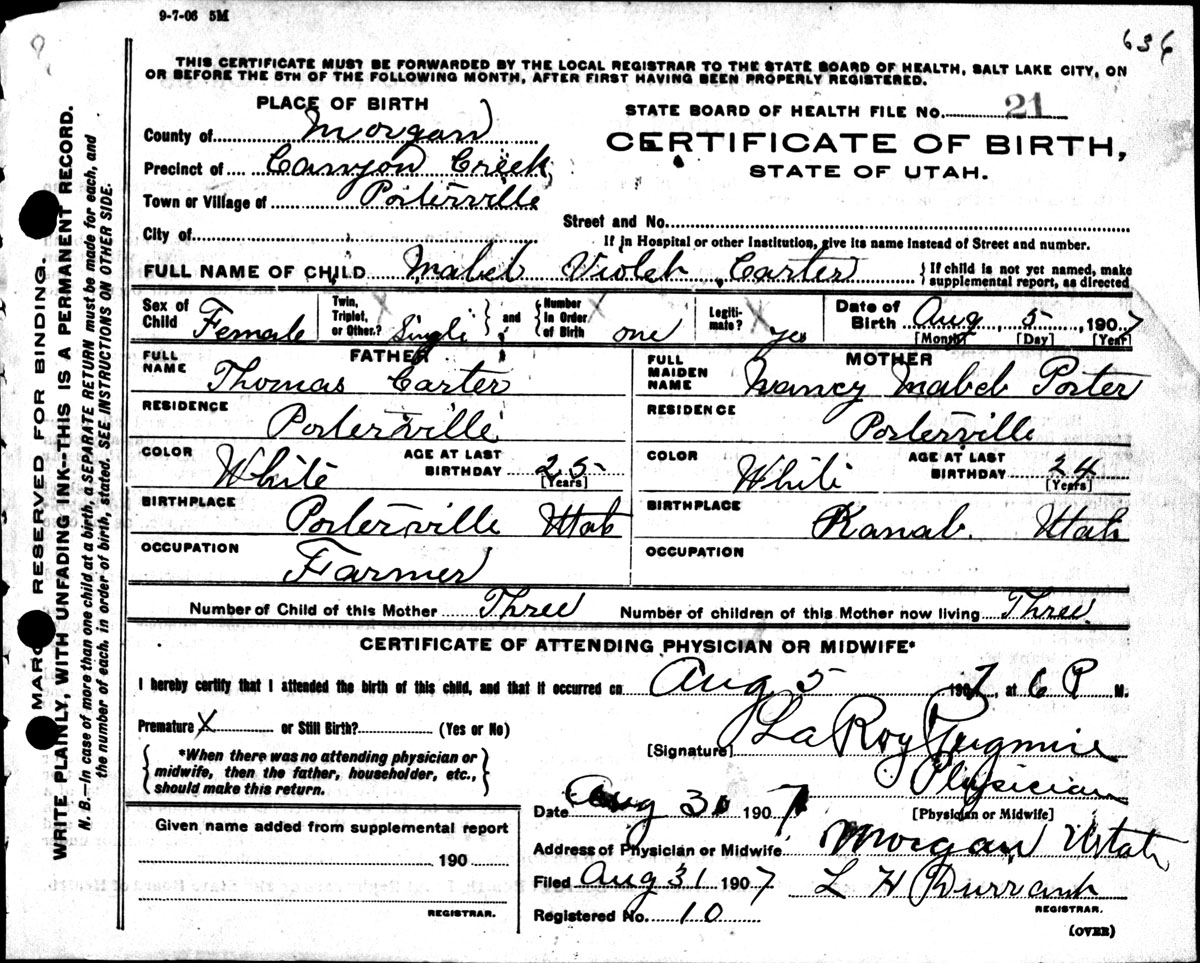 9-7-06 5M
636
THIS CERTIFICATE MUST BE FORWARDED BY THE LOCAL REGISTRAR TO THE STATE BOARD OF HEALTH, SALT LAKE CITY, ON
OR BEFORE THE 5TH OF THE FOLLOWING MONTH, AFTER FIRST HAVING BEEN PROPERLY REGISTERED.
PLACE OF BIRTH
County of Morgan
Precinct of Canyon Creek
Town or Village of Porterville
City of
STATE BOARD OF HEALTH FILE No. 21
CERTIFICATE OF BIRTH,
STATE OF UTAH.
Street and No.
If in Hospital or other Institution, give its name instead of Street and number.
FULL NAME OF CHILD Mabel Violet Carter { If child is not yet named, make
supplemental report, as directed
Sex of Child Female
Twin, Triplet, or Other? Single } and { Number in Order of Birth one
Legitimate? yes
Date of Birth Aug 5, 1907
[Month] [Day] [Year]
FATHER
FULL NAME Thomas Carter
RESIDENCE Porterville
COLOR White AGE AT LAST BIRTHDAY 25 [Years]
BIRTHPLACE Porterville Utah
OCCUPATION Farmer
MOTHER
FULL MAIDEN NAME Nancy Mabel Porter
RESIDENCE Porterville
COLOR White AGE AT LAST BIRTHDAY 24 [Years]
BIRTHPLACE Kanab. Utah
OCCUPATION
Number of Child of this Mother Three Number of children of this Mother now living Three.
CERTIFICATE OF ATTENDING PHYSICIAN OR MIDWIFE*
I hereby certify that I attended the birth of this child, and that it occurred on Aug 5 1907, at 6 P M.
Premature X or Still Birth? (Yes or No)
{ *When there was no attending physician or
midwife, then the father, householder, etc.,
should make this return. }
[Signature] LaRoy Pugmire
Physician
[Physician or Midwife]
Date Aug 31 1907
Address of Physician or Midwife Morgan Utah
Filed Aug 31 1907 L H Durrant
REGISTRAR.
Registered No. 10
(OVER)
Given name added from supplemental report
190
REGISTRAR.
MARG RESERVED FOR BINDING.
WRITE PLAINLY, WITH UNFADING INK--THIS IS A PERMANENT RECORD.
N. B.—In case of more than one child at a birth, a SEPARATE RETURN must be made for each, and
the number of each, in order of birth, stated. SEE INSTRUCTIONS ON OTHER SIDE.